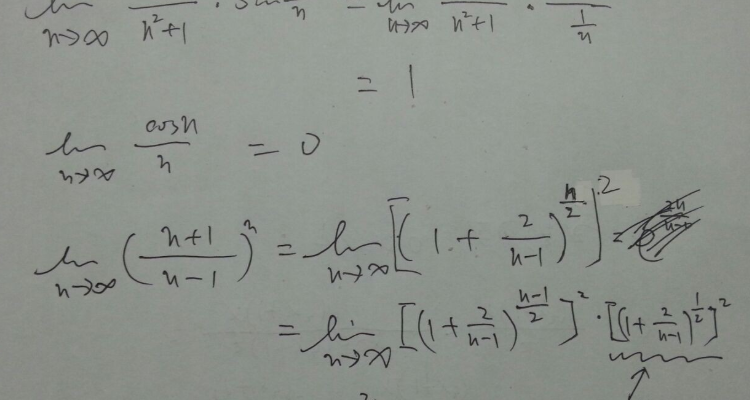 lim n→∞ /(n²+1) · sin = lim n→∞ /(n²+1) · /(1/n)
= 1
lim n→∞ cosn/n = 0
lim n→∞ ((n+1)/(n-1))^n = lim n→∞ [(1 + 2/(n-1))^(n/2)]^2 =
= lim n→∞ [(1 + 2/(n-1))^((n-1)/2)]^2 · [(1 + 2/(n-1))^(1/2)]^2